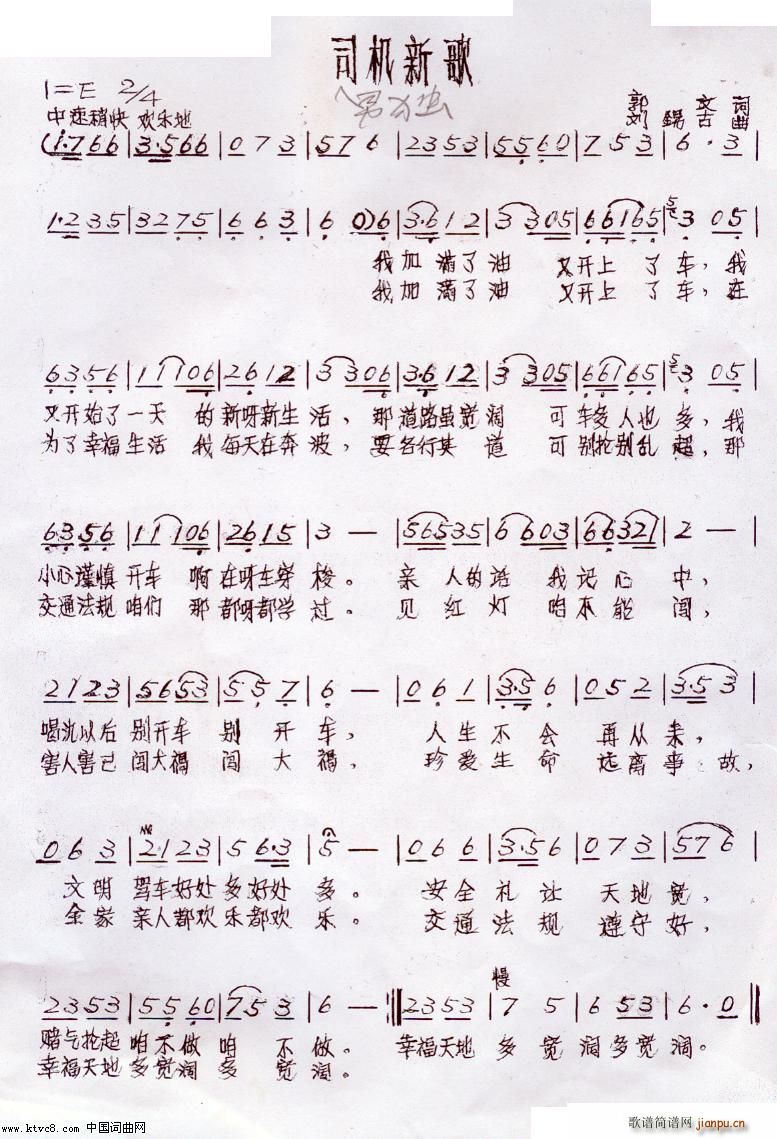 司机新歌
1=E 2/4
中速稍快 欢乐地
郭 文 词
刘 錫 古 曲
(1·766 | 3·566 | 0 7 3 | 5 7 6 | 2353 | 5560 | 7 5 3 | 6 · 3 |
1·235 | 3275 | 6 6 3 | 6 0) 6 | 3·6 1 2 | 3 3 3 0 5 | 6 6 1 6 5 | 3 0 5 |
我加满了油 又开上了车,我
我加满了油 又开上了车,在
6·3·5 6 | 1 1 1 0 6 | 2 6 1 2 | 3 3 3 0 6 | 3·6 1 2 | 3 3 3 0 5 | 6 6 1 6 5 | 3 0 5 |
又开始了一天 的新呀新生活,那道路虽宽阔 可车多人也多,我
为了幸福生活 我每天在奔波,要各行其道 可别抢别乱超,那
6·3·5 6 | 1 1 1 0 6 | 2 6 1 5 | 3 — | 5 6 5 3 5 | 6 6 0 3 | 6 6 3 2 1 | 2 — |
小心谨慎开车 啊在呀车穿梭。 亲人的话 我记心中,
交通法规咱们 那都呀都学过。 见红灯 咱不能闯,
2 1 2 3 | 5 6 5 3 | 5 5 7 | 6 — | 0 6 1 | 3·5 6 | 0 5 2 | 3·5 3 |
喝洗以后别开车 别开车, 人生不会再从来,
害人害己闯大祸 闯大祸, 珍爱生命远离事故,
0 6 3 | 2·1 2 3 | 5 6·3 | 5 — | 0 6 6 | 3·5 6 | 0 7 3 | 5 7 6 |
文明驾车好处多好处多。 安全礼让天地宽,
全家亲人都欢乐都欢乐。 交通法规遵守好,
慢
2 3 5 3 | 5 5 6 0 | 7 5 3 | 6 — :‖ 2 3 5 3 | 7 5 | 6 5 3 | 6 · 0 ‖
赌气抢超咱不做咱不做。 幸福天地多宽阔多宽阔。
幸福天地多宽阔多宽阔。
www.ktvc8.com 中国词曲网
歌谱简谱网
jianpu.cn